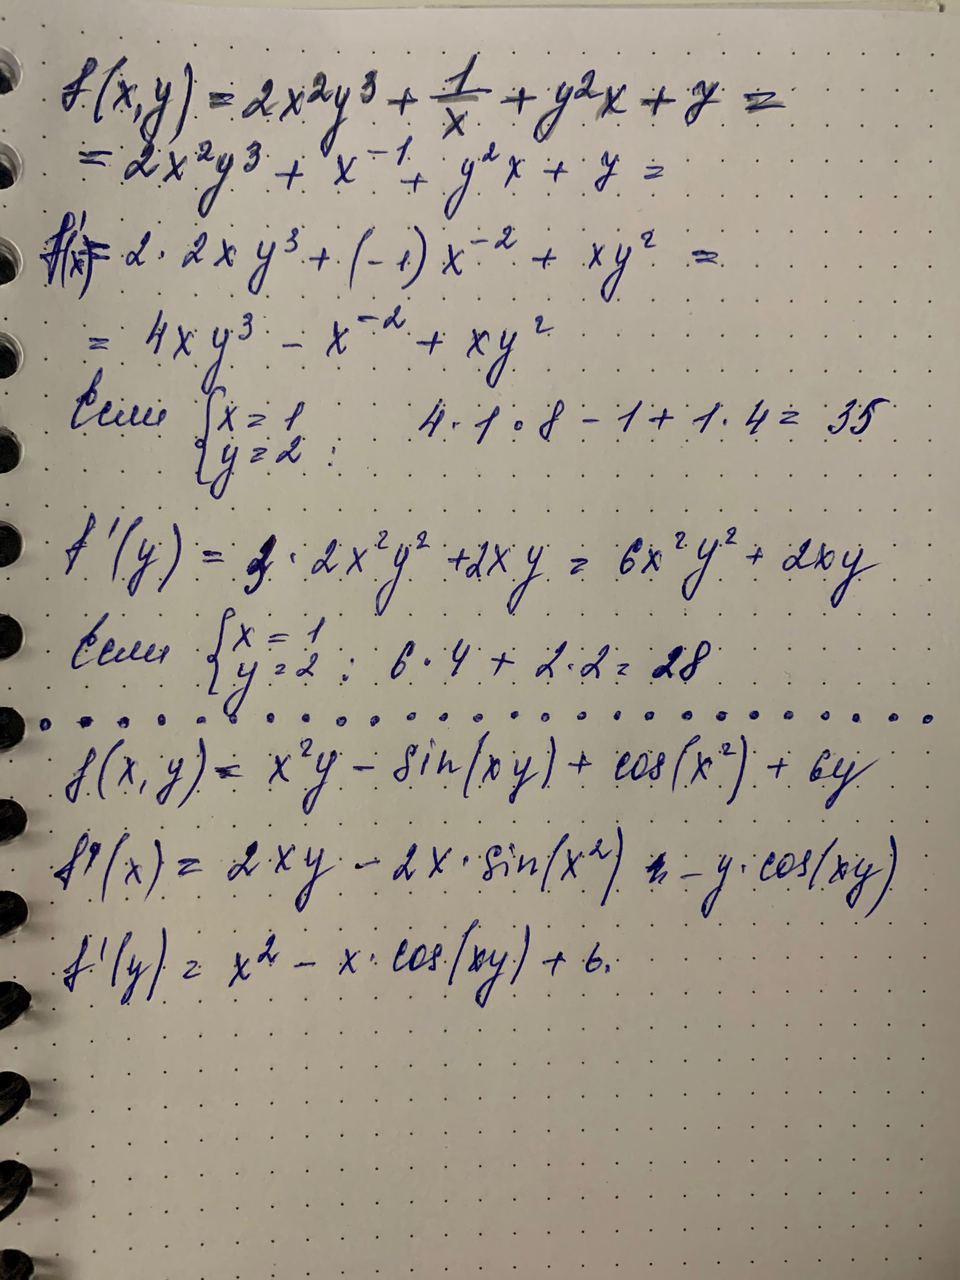 f(x,y) = 2x²y³ + 1/x + y²x + y =
= 2x²y³ + x⁻¹ + y²x + y =
f'(x) = 2·2xy³ + (-1)x⁻² + xy² =
= 4xy³ - x⁻² + xy²
Если {x=1 y=2 : 4·1·8 - 1 + 1·4 = 35
f'(y) = 3·2x²y² + 2xy = 6x²y² + 2xy
Если {x=1 y=2 : 6·4 + 2·2 = 28
f(x,y) = x²y - sin(xy) + cos(x²) + 6y
f'(x) = 2xy - 2x·sin(x²) - y·cos(xy)
f'(y) = x² - x·cos(xy) + 6.